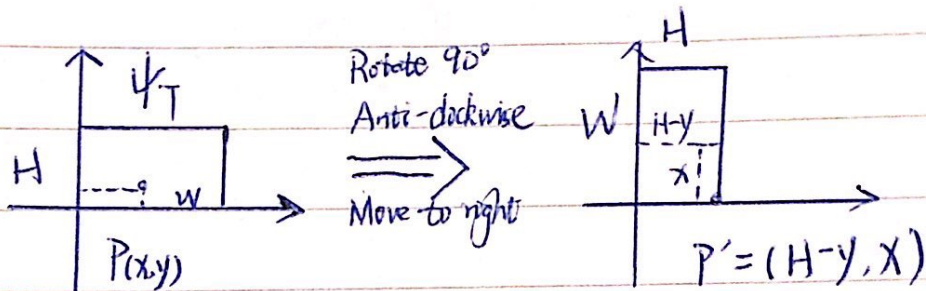 ψT
H
W
P(x,y)
Rotate 90°
Anti-clockwise
Move to right
H
W
H-y
x
P'=(H-y, x)